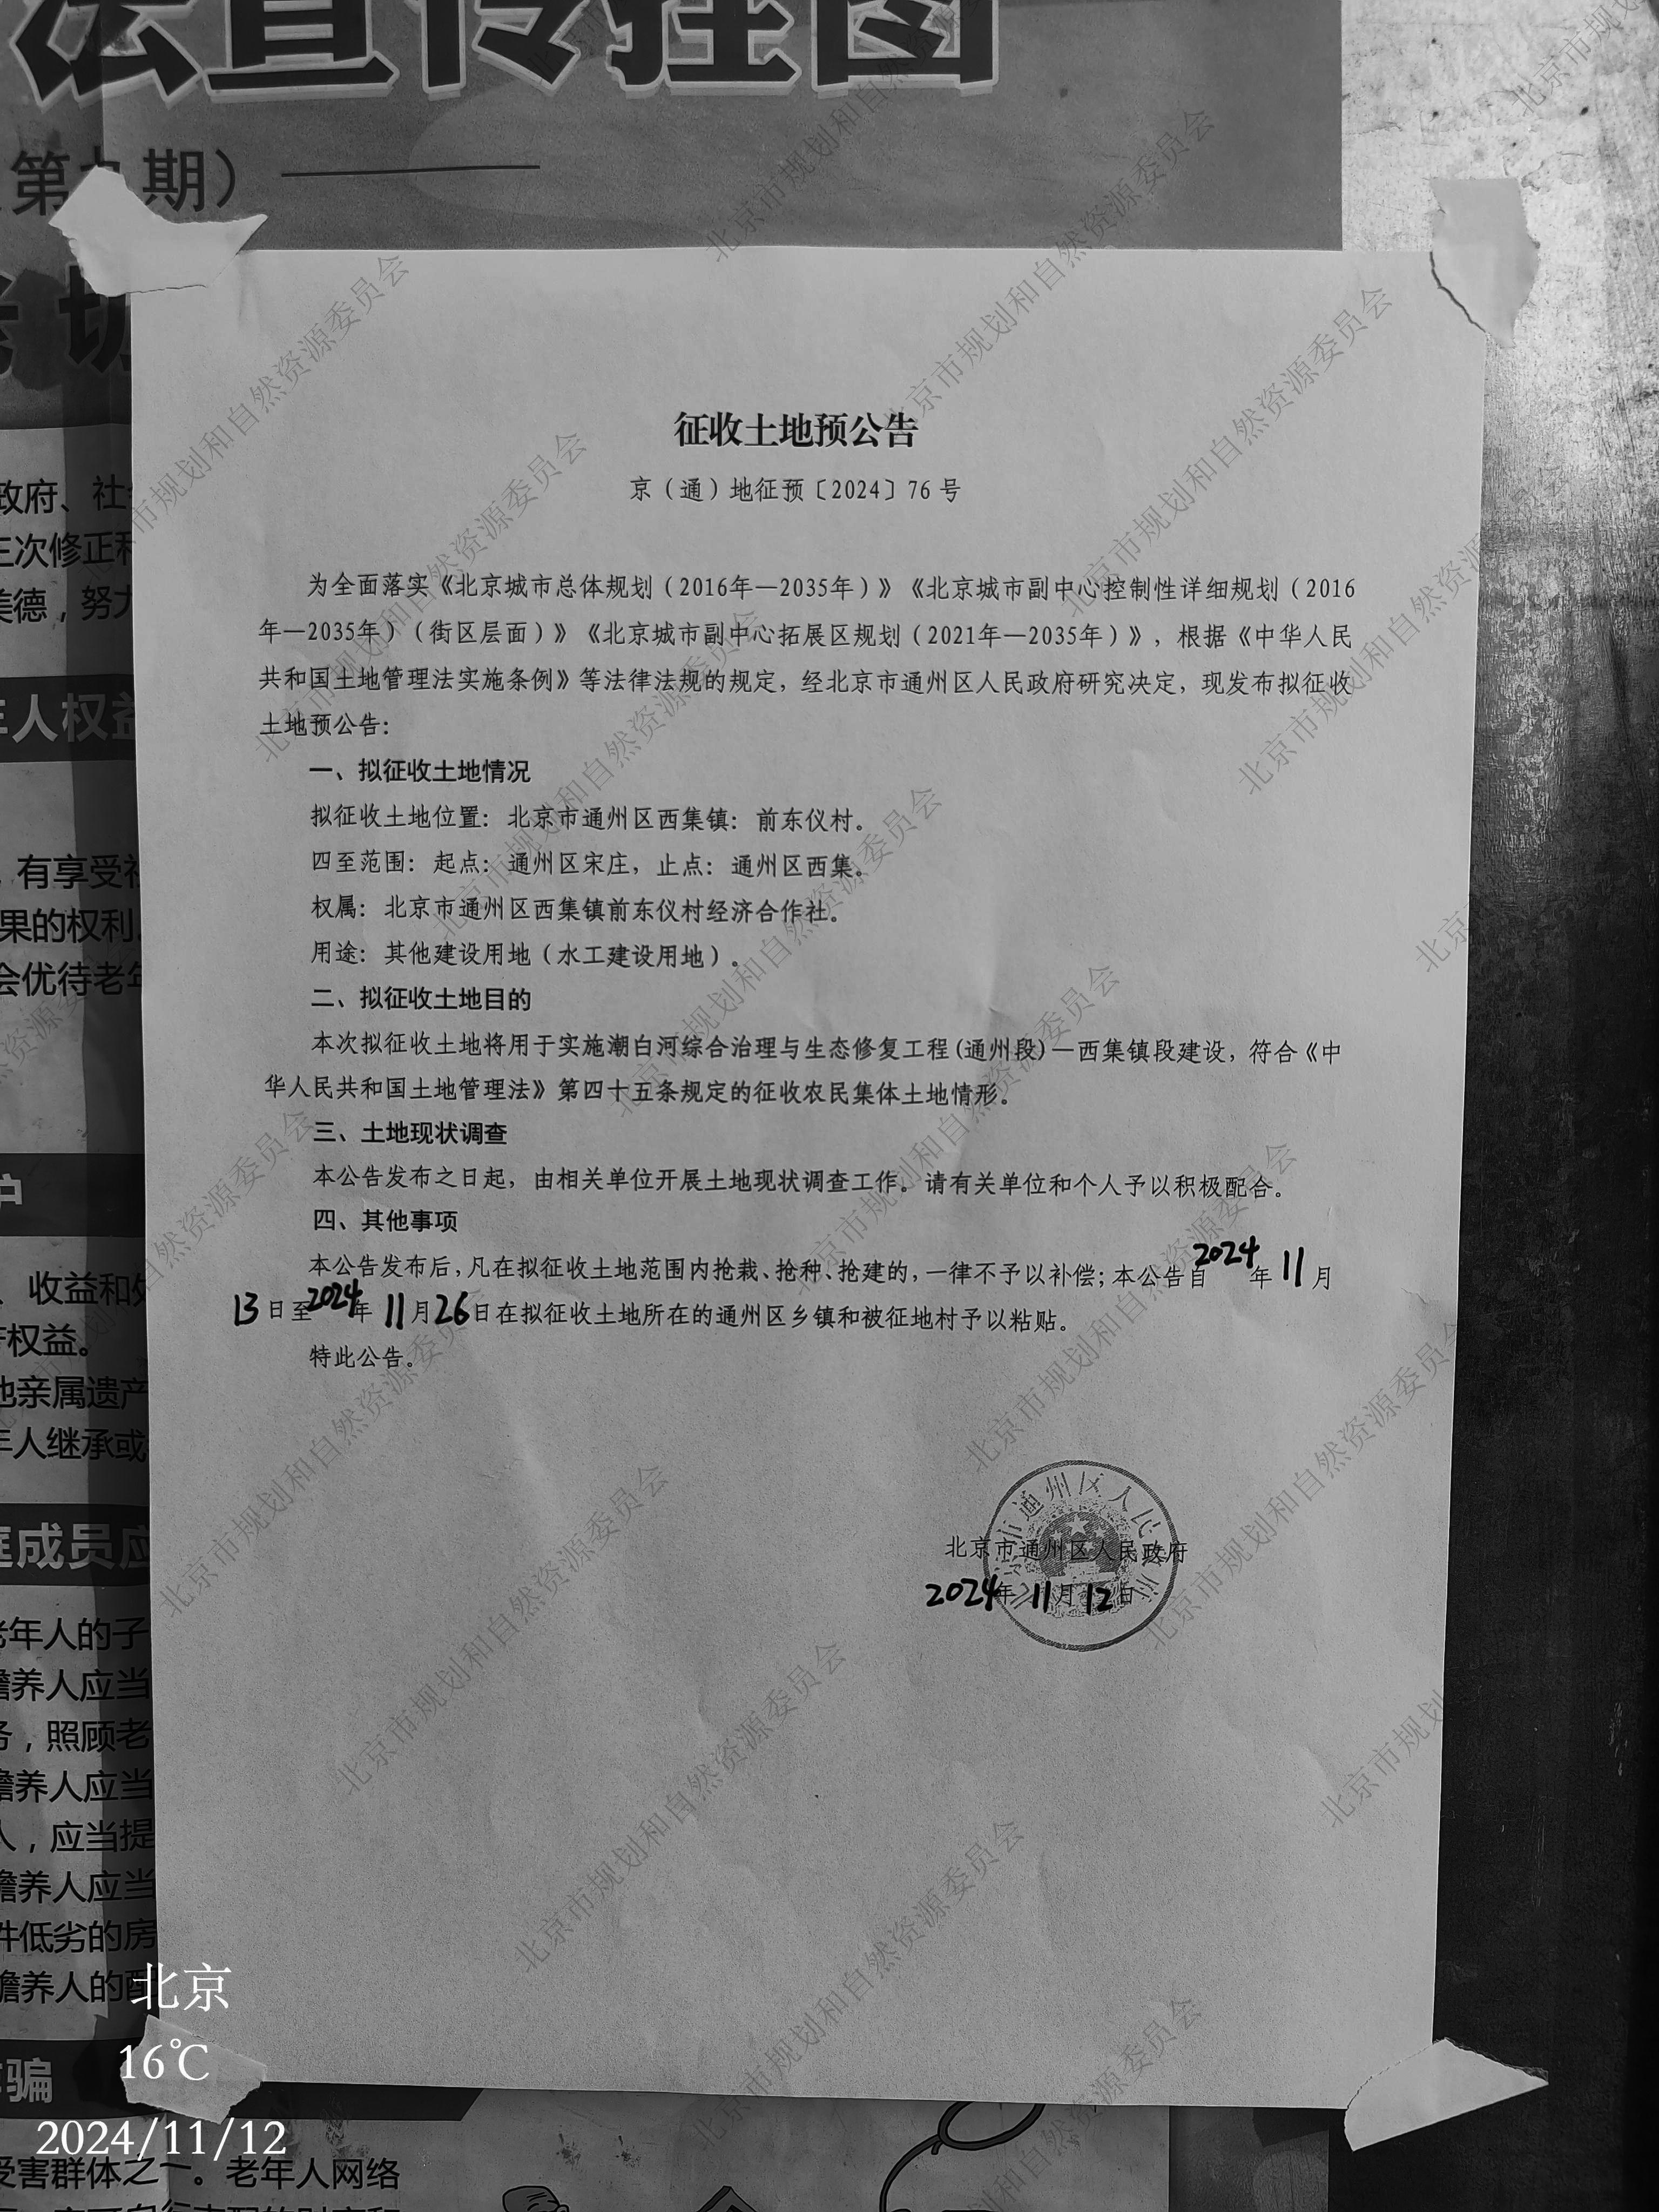 法宣传挂图
第九期）
征收土地预公告
京（通）地征预〔2024〕76 号
为全面落实《北京城市总体规划（2016年—2035年）》《北京城市副中心控制性详细规划（2016
年—2035年）（街区层面）》《北京城市副中心拓展区规划（2021年—2035年）》，根据《中华人民
共和国土地管理法实施条例》等法律法规的规定，经北京市通州区人民政府研究决定，现发布拟征收
土地预公告：
一、拟征收土地情况
拟征收土地位置：北京市通州区西集镇：前东仪村。
四至范围：起点：通州区宋庄，止点：通州区西集。
权属：北京市通州区西集镇前东仪村经济合作社。
用途：其他建设用地（水工建设用地）。
二、拟征收土地目的
本次拟征收土地将用于实施潮白河综合治理与生态修复工程(通州段)—西集镇段建设，符合《中
华人民共和国土地管理法》第四十五条规定的征收农民集体土地情形。
三、土地现状调查
本公告发布之日起，由相关单位开展土地现状调查工作。请有关单位和个人予以积极配合。
四、其他事项
本公告发布后，凡在拟征收土地范围内抢栽、抢种、抢建的，一律不予以补偿；本公告自2024年11月
13日至2024年11月26日在拟征收土地所在的通州区乡镇和被征地村予以粘贴。
特此公告。
北京市通州区人民政府
2024年11月12日
政府、社
三次修正和
美德，努力
年人权益
有享受社
果的权利。
会优待老年
护
、收益和处
权益。
他亲属遗产
年人继承或
庭成员应
老年人的子
赡养人应当
务，照顾老
赡养人应当
人，应当提
赡养人应当
件低劣的房
赡养人的配
骗
受害群体之一。老年人网络
北京
16℃
2024/11/12
北京市规划和自然资源委员会